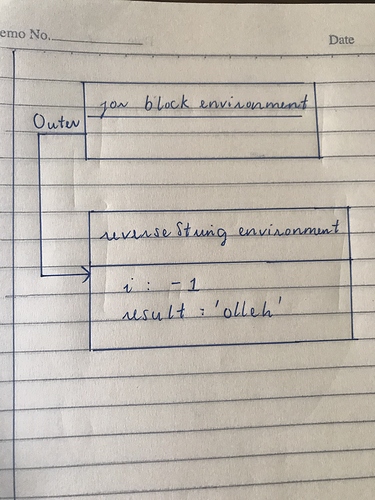 emo No.
Date
for block environment
Outer
reverseString environment
i : -1
result : 'olleh'